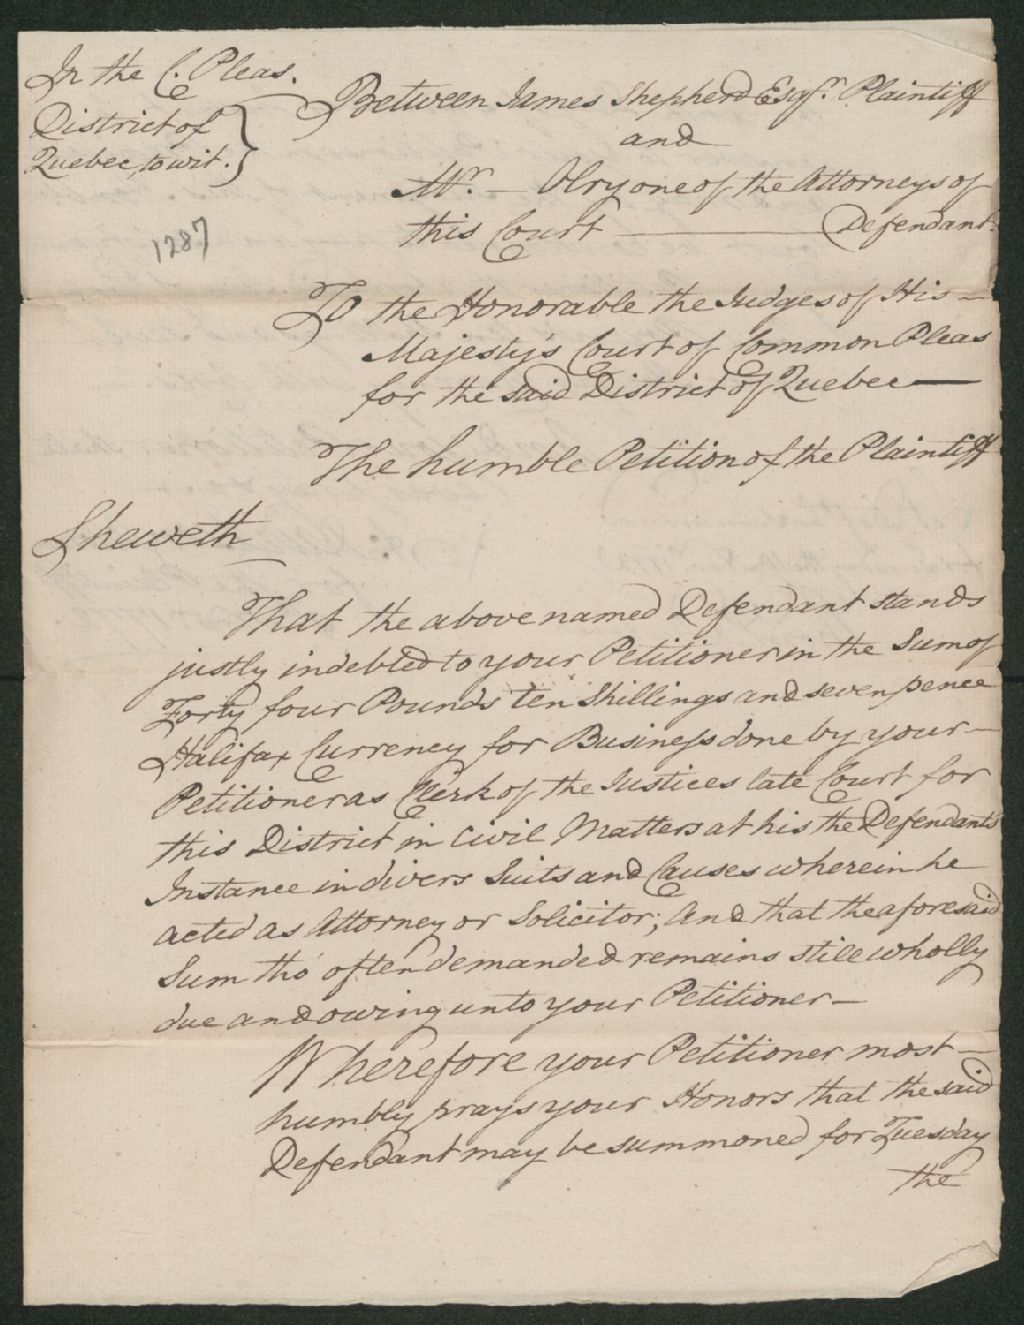 In the C. Pleas.
District of
Quebec, to wit.
Between James Shepherd Esqr. Plaintiff
and
Mr. — Olry one of the Attorneys of
this Court — Defendant.
1287
To the Honorable the Judges of His —
Majesty's Court of Common Pleas
for the said District of Quebec —
The humble Petition of the Plaintiff
Sheweth
That the above named Defendant stands
justly indebted to your Petitioner in the Sum of
Forty four Pounds ten Shillings and seven pence
Halifax Currency for Business done by your —
Petitioner as Clerk of the Justices late Court for
this District in Civil Matters at his the Defendants
Instance in divers Suits and Causes wherein he
acted as Attorney or Solicitor; And that the aforesaid
Sum tho' often demanded remains still wholly
due and owing unto your Petitioner —
Wherefore your Petitioner most —
humbly prays your Honors that the said
Defendant may be summoned for Tuesday
the